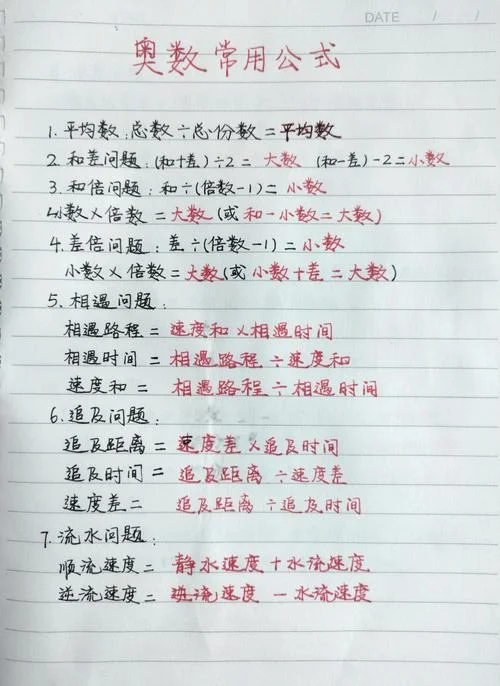 DATE / /
奥数常用公式
1.平均数:总数÷总份数=平均数
2.和差问题:(和+差)÷2=大数 (和-差)-2=小数
3.和倍问题:和÷(倍数-1)=小数
小数×倍数=大数(或和-小数=大数)
4.差倍问题:差÷(倍数-1)=小数
小数×倍数=大数(或小数+差=大数)
5.相遇问题:
相遇路程=速度和×相遇时间
相遇时间=相遇路程÷速度和
速度和=相遇路程÷相遇时间
6.追及问题:
追及距离=速度差×追及时间
追及时间=追及距离÷速度差
速度差=追及距离÷追及时间
7.流水问题:
顺流速度=静水速度+水流速度
逆流速度=逆流速度-水流速度